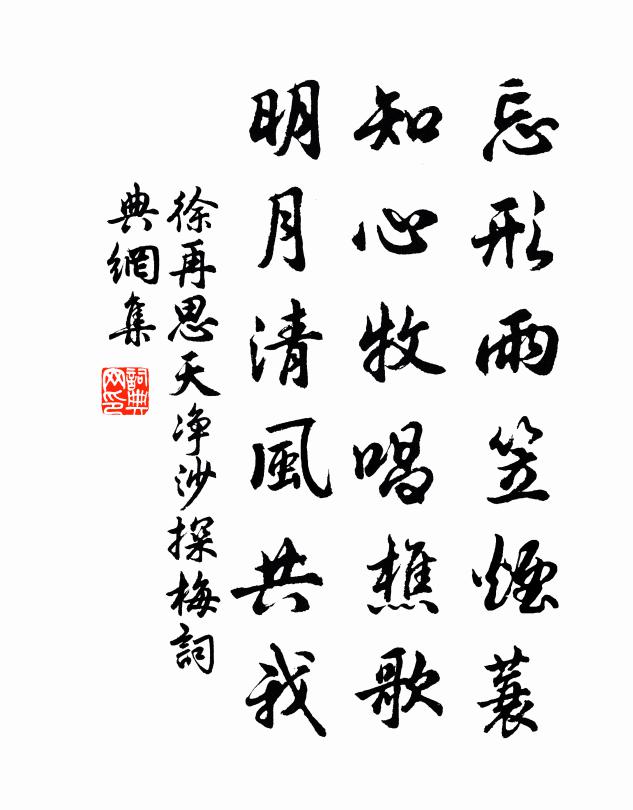 忘形雨笠煙蓑
知心牧唱樵歌
明月清風共我
徐再思天净沙探梅詞
典網集
詞典網印